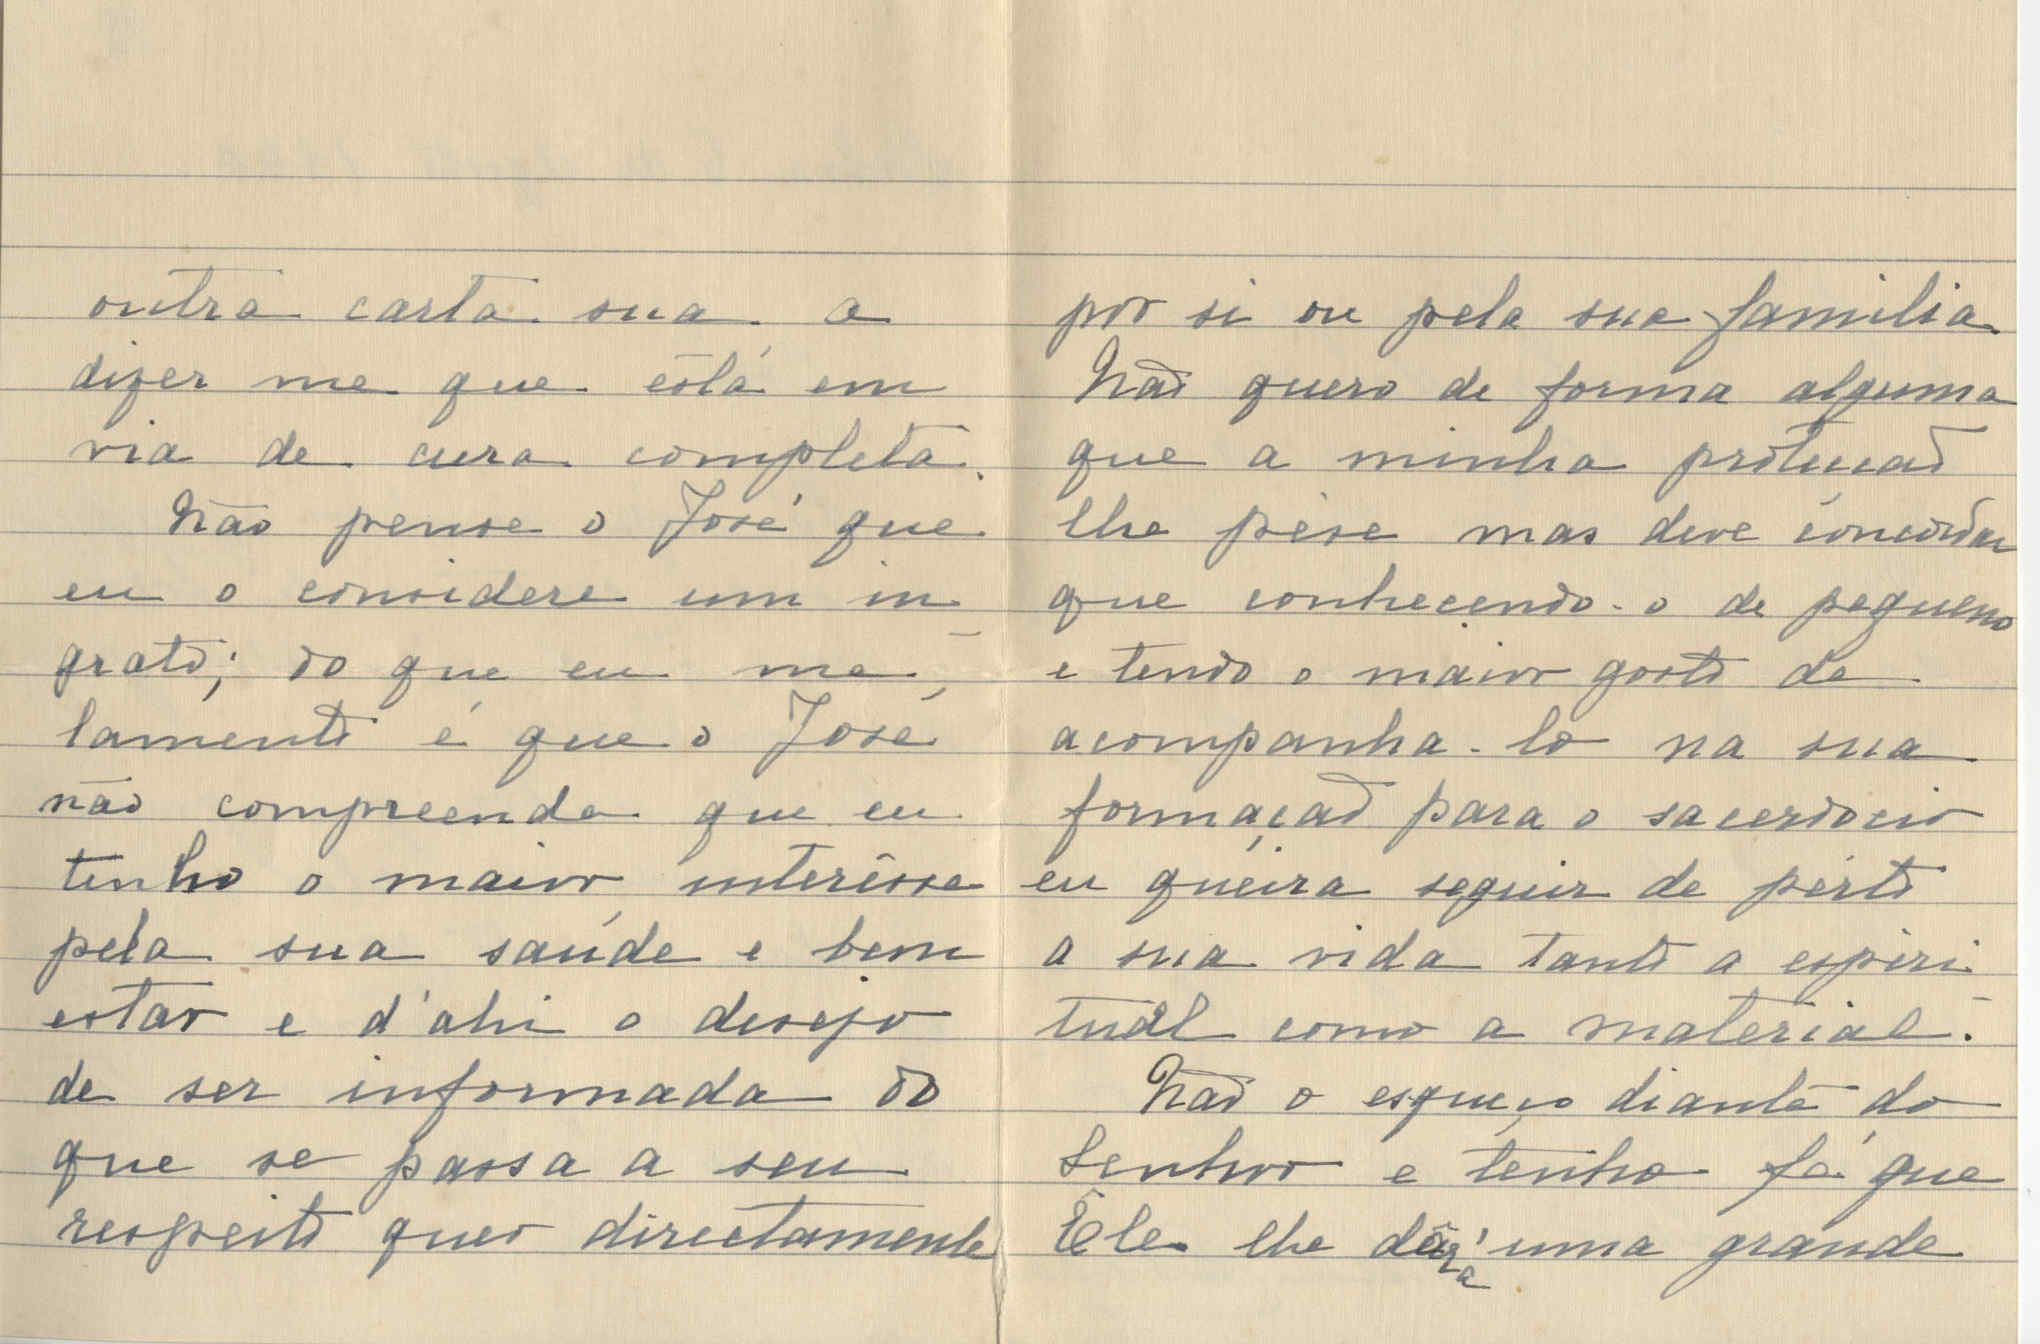 outra carta sua a
dizer me que está em
via de cura completa.
Não pense o José que
eu o considere um in
grato; do que eu me
lamento é que o José
não compreenda que eu
tenho o maior interêsse
pela sua saúde e bem
estar e d'ahi o desejo
de ser informada do
que se passa a seu
respeito quer directamente
por si ou pela sua familia
Não quero de forma alguma
que a minha
lhe pése mas deve concordar
que conhecendo-o de pequeno
e tendo o maior gosto de
acompanha-lo na sua
formação para o sacerdocio
eu queira seguir de perto
a sua vida tanto a espiri
tual como a material.
Não o esqueço diante do
Senhor e tenho fé que
Êle lhe dará uma grande